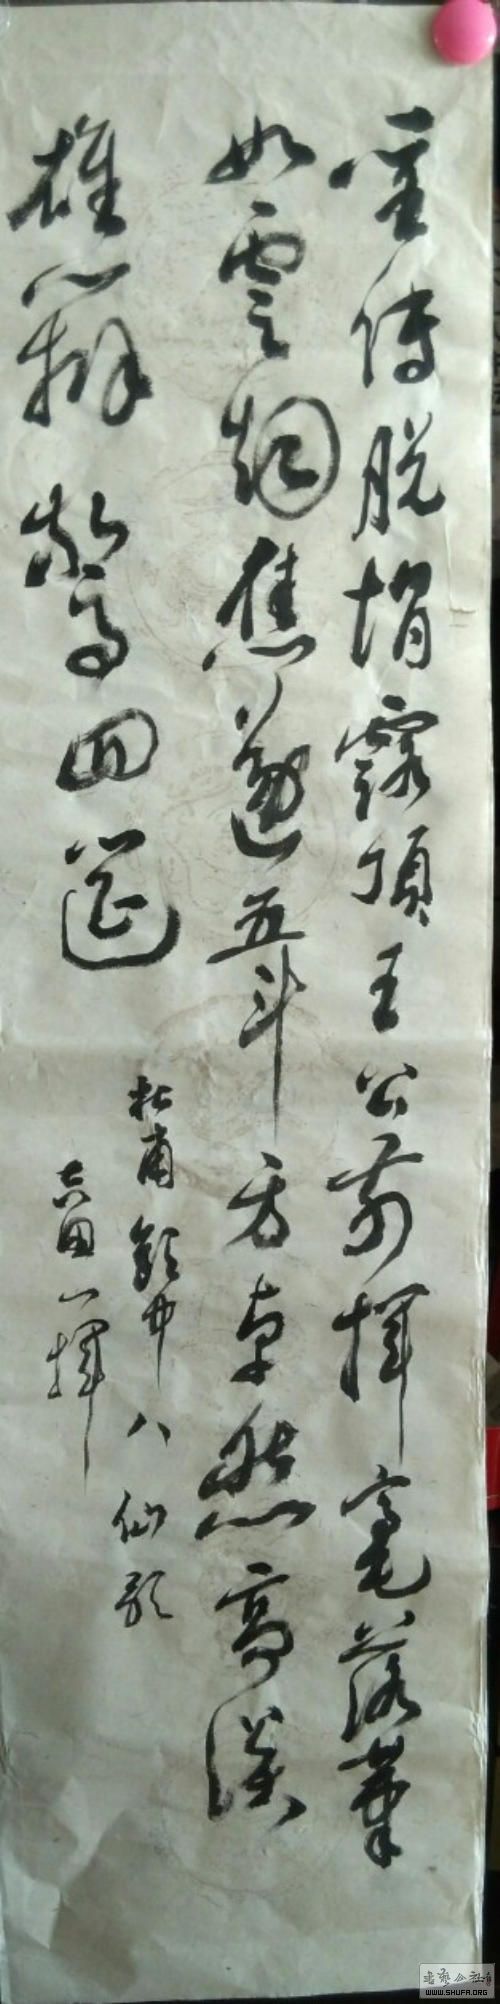 聖傳脱帽露頂王公前揮毫落筆
如雲烟焦遂五斗方卓然高談
雄辯驚四筵
杜甫飲中八仙歌
一揮
書藝公社
WWW.SHUFA.ORG